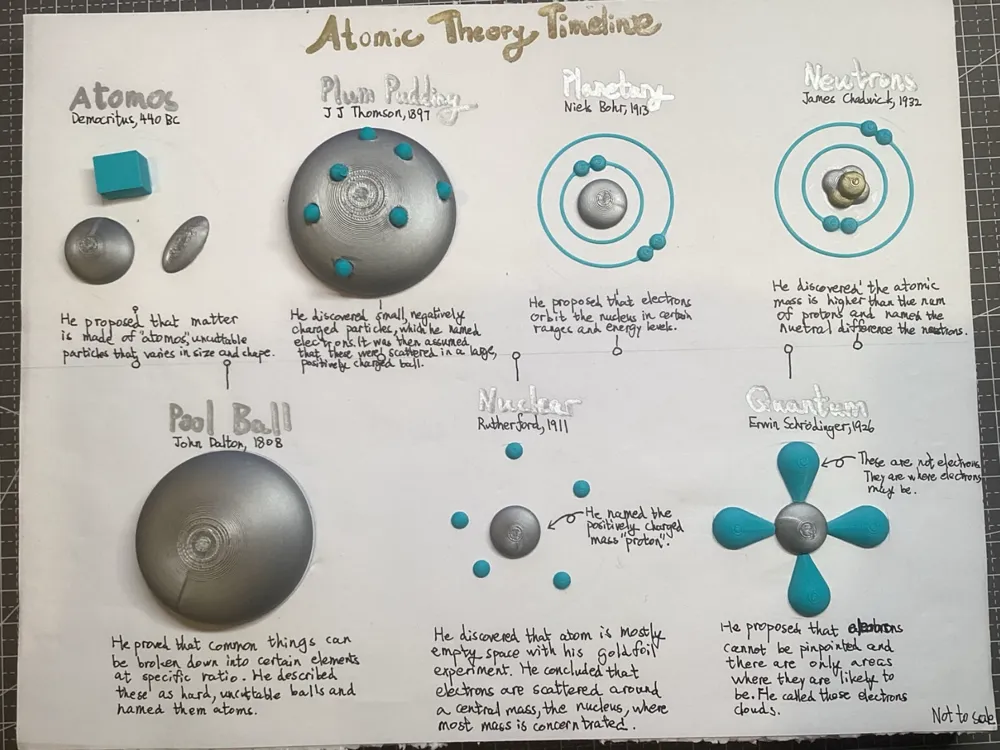 Atomic Theory Timeline
Atomos
Democritus, 440 BC
He proposed that matter
is made of "atomos," uncuttable
particles that varies in size and shape.
Plum Pudding
J J Thomson, 1897
He discovered small, negatively
charged particles, which he named
electrons. It was then assumed
that there were scattered in a large,
positively charged ball.
Planetary
Niels Bohr, 1913
He proposed that electrons
orbit the nucleus in certain
ranges and energy levels.
Newtrons
James Chadwick, 1932
He discovered the atomic
mass is higher than the num
of protons and named the
nuetral difference the neutrons.
Pool Ball
John Dalton, 1808
He proved that common things can
be broken down into certain elements
at specific ratio. He described
these as hard, uncuttable balls and
named them atoms.
Nuclear
Rutherford, 1911
He named the
positively charged
mass "proton".
He discovered that atom is mostly
empty space with his gold foil
experiment. He concluded that
electrons are scattered around
a central mass, the nucleus, where
most mass is concentrated.
Quantum
Erwin Schrödinger, 1926
These are not electrons.
They are where electrons
may be.
He proposed that electrons
cannot be pinpointed and
there are only areas
where they are likely to
be. He called those electrons
clouds.
Not to scale